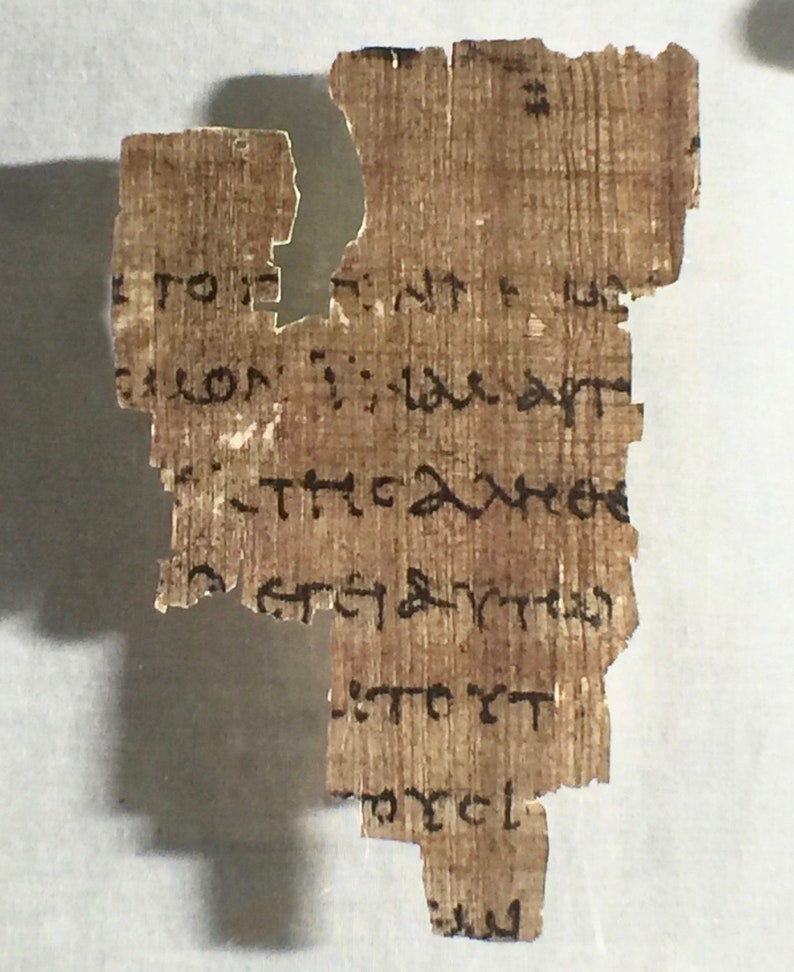 ΤΟ Γ ΓΕΝΝΗΜΑΙ
ϹΜΟΝ ΙΝΑ ΜΑΡΤ
Κ ΤΗϹ ΑΛΗΘΕ
ΛΕΓΕΙ ΑΥΤΩ
ΑΙ ΤΟΥΤ
ΤΟΥϹ Ι
ΜΙ